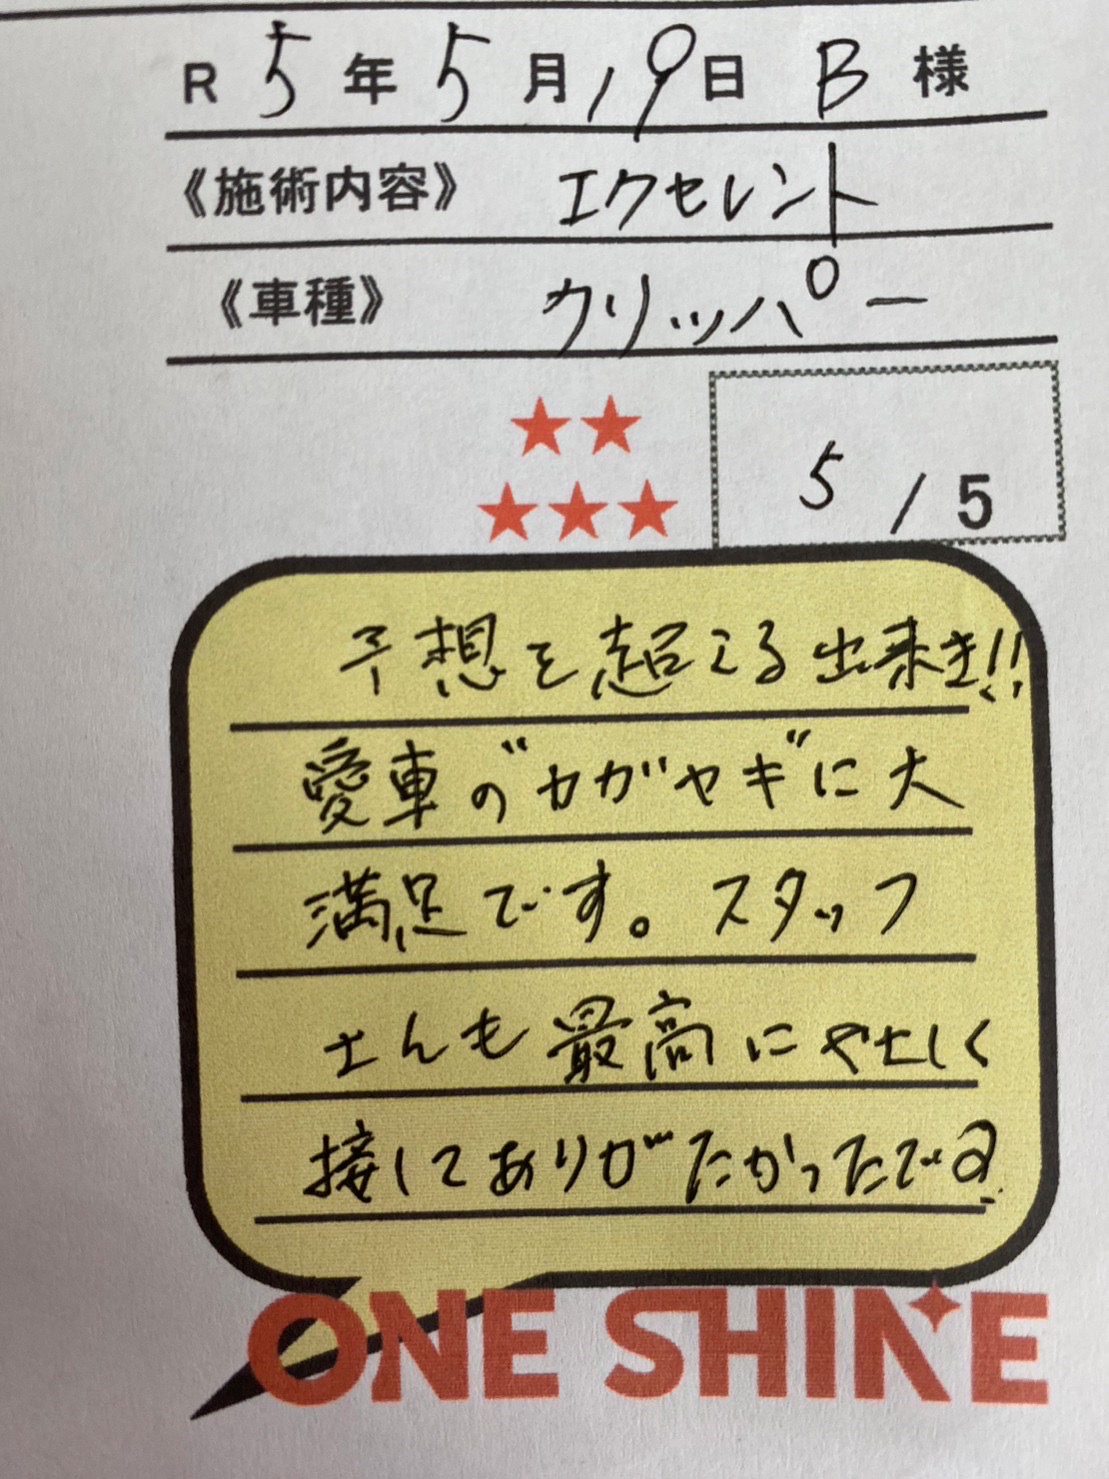 R 5年5月19日 B 様
《施術内容》 エクセレント
《車種》 クリッパー
5/5
予想を超える出来き!!
愛車の"カガヤキ"に大
満足です。スタッフ
さんも最高にやさしく
接してありがたかったです
ONE SHINE